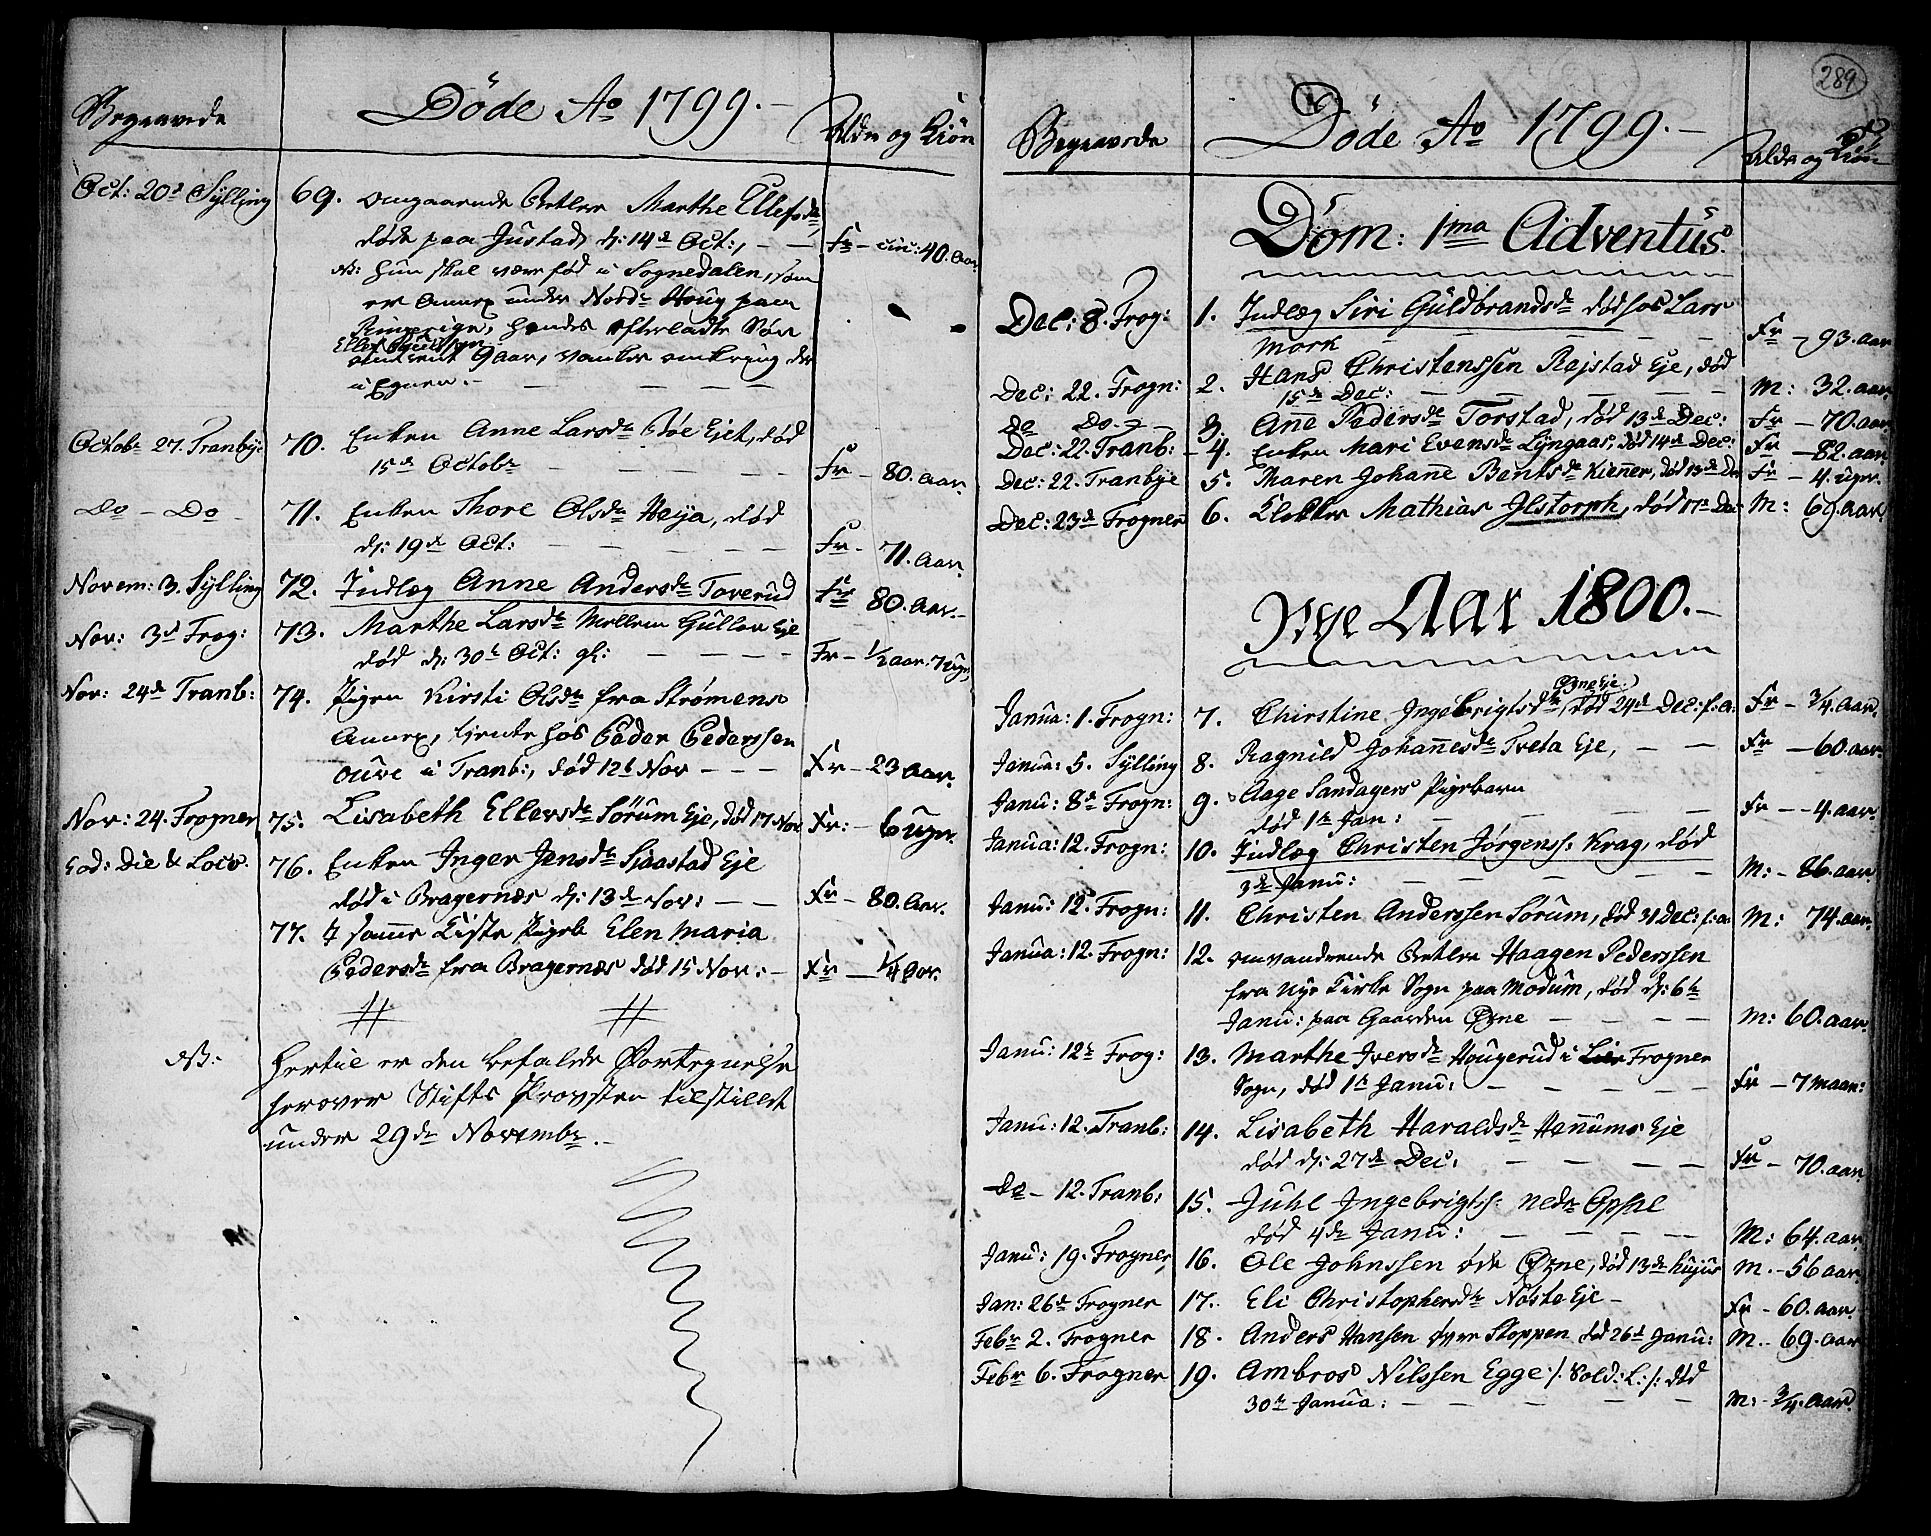 Begravede
Døde Ao 1799.-
Alder og Kiøn
Oct: 20de Sylling 69. omgaaende Betler Marthe Ellefsdr
døde paa Justad d: 14de Oct:, Fr - circ: 40. aar
NB: hun skal være fød i Sognedalen, som
er Annex under Nordr Houg paa
Ringerige, hendes efterladte Søn
omtrent 9 aar, vanker omkring der
i Egnen.
Octobr 27. Tranbye 70. Enken Anne Larsdr Bøe Ejet, død
15de Octobr Fr - 80. aar.
Do - Do - 71. Enken Thore Olsdr Høya, død
d: 19de Oct: Fr - 71. aar.
Novem: 3. Sylling 72. Indlæg Anne Andersdr Toverud Fr 80. aar.-
Nor: 3d Frog: 73. Marthe Larsdr Mellem Gullou Eje
død d: 30te Oct: Fr - 1/2 aar. 7 ugr
Nor: 24de Tranb: 74. Pigen Kirsti Olsdr fra Strømens
Annex, tjente hos Peder Pederssen
ouve i Tranb:, død 12t Nov - - - Fr - 23 aar.
Nov: 24. Frogner 75. Lisabeth Ellevsdr Sørum Eje, død 17 Nov Fr: - 6 ugr.
Eod: Die & Loco. 76. Enken Inger Jensdr Sjaastad Eje
død i Bragernæs d: 13de Nov: - - Fr - 80. aar.
77. I samme Kiste Pigeb Elen Maria
Pedersdr fra Bragernæs død 15 Nov: - Fr - 1/4 aar.
NB: Hertil er den befalede Fortegnelse
herover Stifts Provsten tilstillet
under 29de Novembr.-
289
Begravede
Døde Ao 1799.-
Alder og Kiøn
Dom: 1ma Adventus.
Dec: 8. Frog: 1. Indlæg Siri Guldbrandsdr død hos Lars
Mørk Fr - 93. aar
Dec: 22. Frogn: 2. Hans Christenssen Rejstad Eje, død
15de Dec: M: 32. aar.
Do Do - 3. Ane Pedersdr Torstad, død 13de Dec: Fr - 70. aar.
Dec: 22. Tranb: - 4. Enken Mari Evensdr Lyngaas, død 14de Dec: Fr - 82. aar.
Dec: 22. Tranbye 5. Maren Johane Bentsdr Kiener, død 13de Dec Fr - 4. ugr.
Dec: 23de Frogner 6. Klokker Mathias Ilstorph, død 17de Dec M: 69. aar.
Nye Aar 1800.-
Janua: 1. Frogn: 7. Chirstine Ingebrigtsdr, Øgne Eje død 24de Dec: f: a: Fr - 3/4. aar.
Janua: 5. Sylling 8. Ragnild Johanesdr Tveta Eje, - - Fr - 60. aar.
Janu: 8de Frogn: 9. Aage Sandagers Pigebarn
død 1te Jan: Fr - - 4. aar.
Janua: 12. Frogn: 10. Indlæg Christen Jørgens: Krag, død
3de Janu: M: - 86. aar.
Janu: 12. Frogn: 11. Christen Anderssen Sørum, død 31 Dec: f: a: M: 74. aar.
Janua: 12. Frogn: 12. omvandrende Betler Haagen Pederssen
fra Nye Kirke Sogn paa Modum, død d: 6te
Janu: paa Gaarden Øgne M: 60. aar.
Janu: 12te Frog: 13. Marthe Iversdr Hougerud i Lier Frogner
Sogn, død 1te Janu: Fr - 7 maan:
Janu: 12. Tranb: 14. Lisabeth Haraldsdr Hanums Eje
død d: 27de Dec: Fr - 70. aar.
Do - 12. Tranb: 15. Juhl Ingebrigts: nedr Opsal
død 4de Janu: M: 64. aar.
Janu: 19. Frogner 16. Ole Johnssen øvr Øgne, død 13de hujus M. - 56 aar.
Jan: 26de Frogner 17. Eli Christophersdr Nøste Eje - Fr - 60. aar.
Febr 2. Frogner 18. Anders Hansen Stoppen, død 26d Janu: M. - 69. aar
Febr 6. Frogner 19. Ambros Nilssen Egge /: Sold: L: /: død
30te Janua: M: - 3/4. aar.